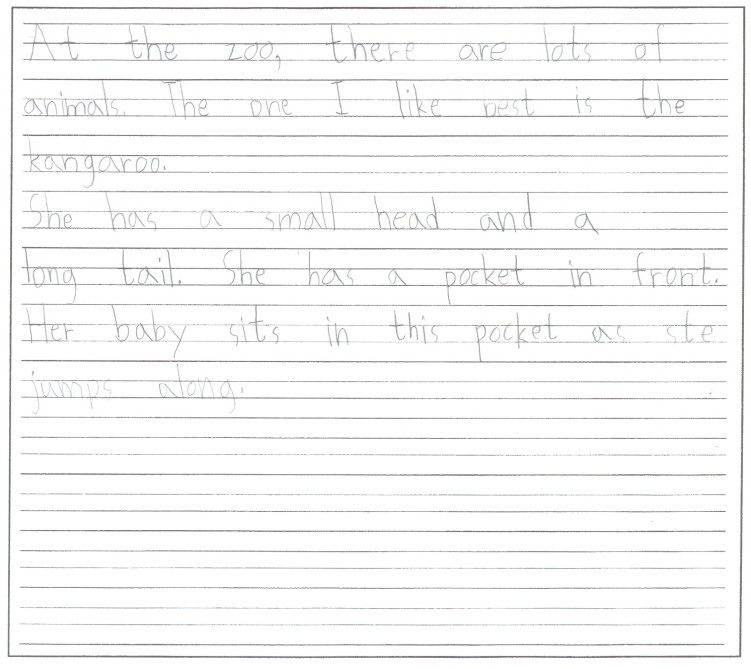 At the zoo, there are lots of
animals. The one I like best is the
kangaroo.
She has a small head and a
long tail. She has a pocket in front.
Her baby sits in this pocket as ste
jumps along.